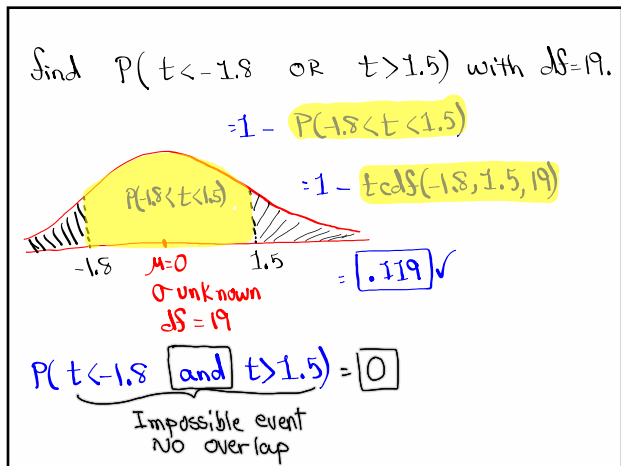 find P( t<-1.8 OR t>1.5) with df=19.
=1 - P(-1.8<t<1.5)
=1 - tcdf(-1.8,1.5,19)
P(-1.8<t<1.5)
-1.8 μ=0 1.5
= .119 ✓
σ unknown
df = 19
P( t<-1.8 and t>1.5) = 0
Impossible event
NO overlap